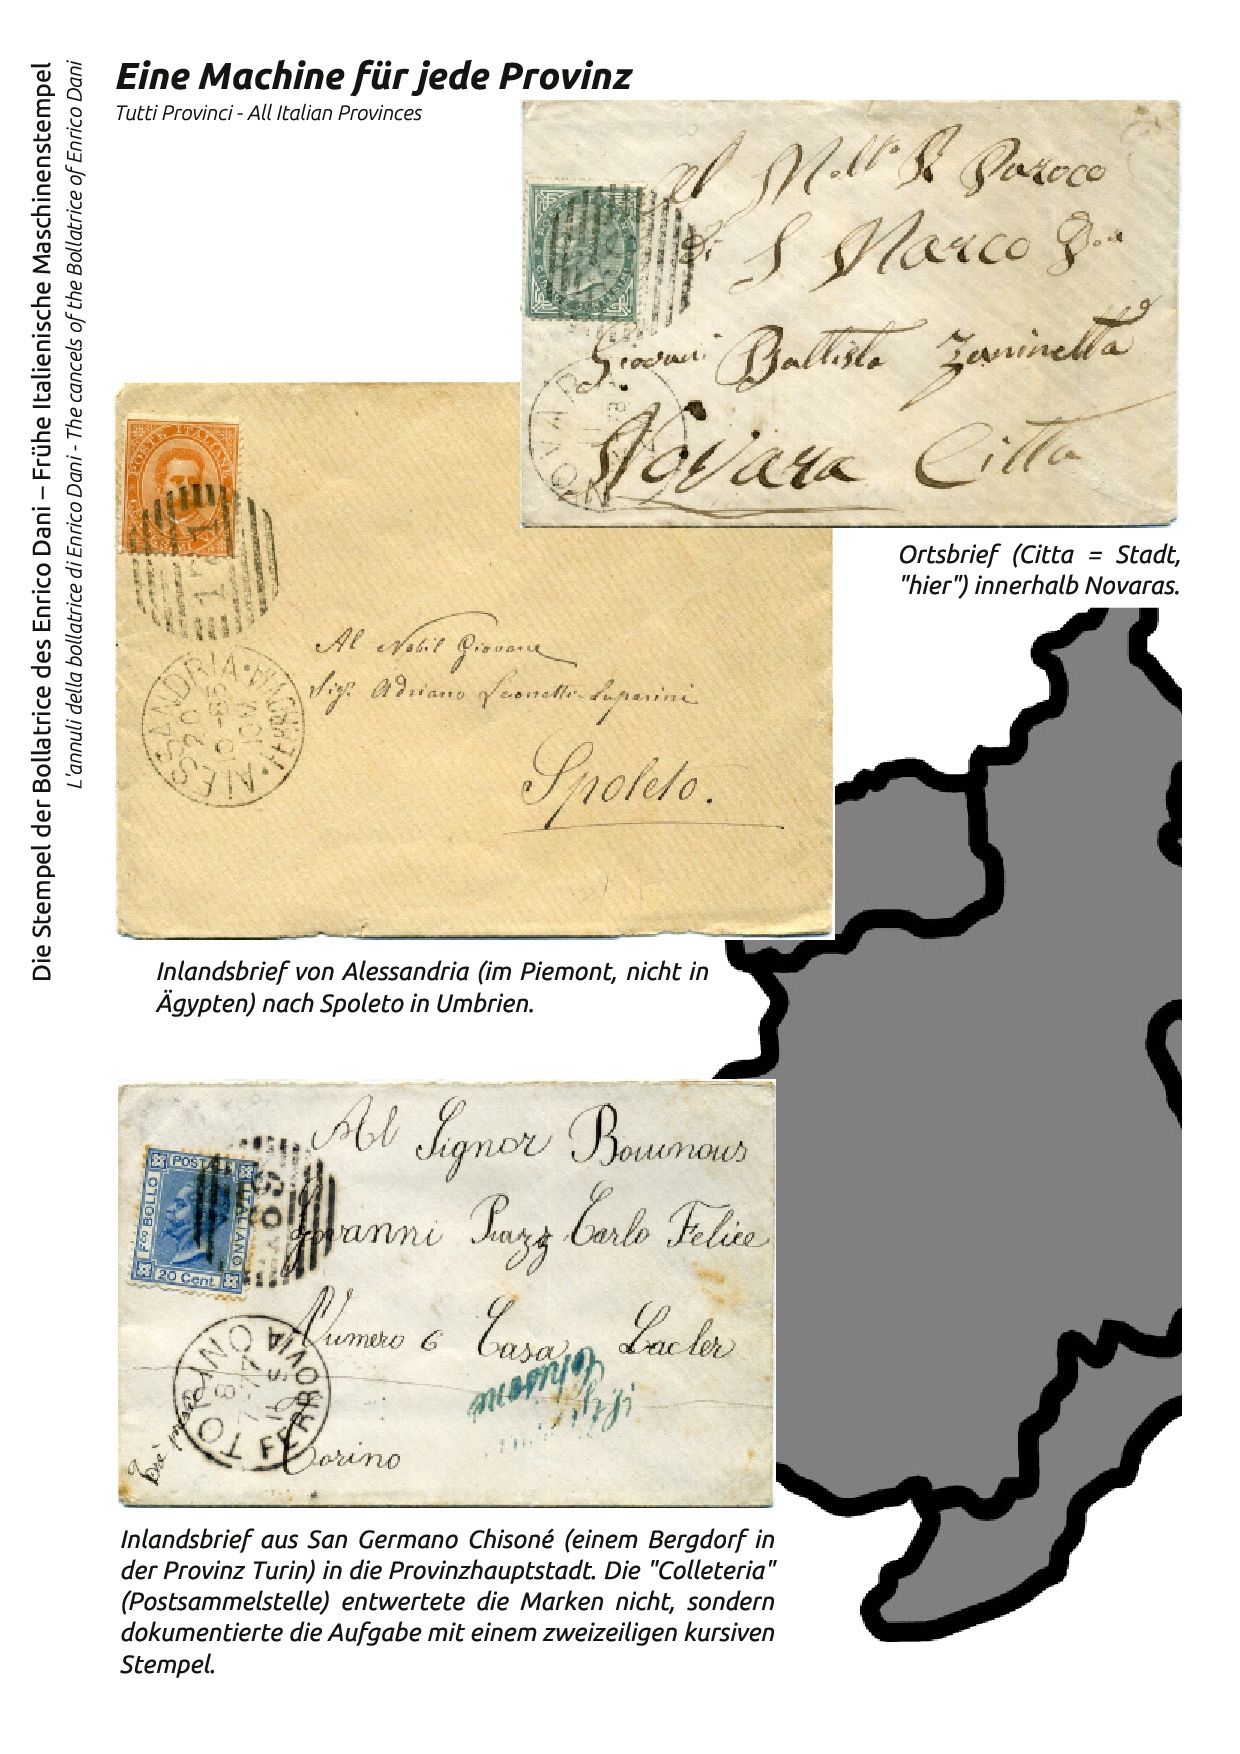 Eine Machine für jede Provinz
Tutti Provinci - All Italian Provinces
Die Stempel der Bollatrice des Enrico Dani – Frühe Italienische Maschinenstempel
L'annuli della bollatrice di Enrico Dani - The cancels of the Bollatrice of Enrico Dani
Paroco
di S Marco
Giovani Battista Zaninetta
Novara Citta
Ortsbrief (Citta = Stadt,
"hier") innerhalb Novaras.
POSTE ITALIANE
Al Nobil Giovane
Sigr Adriano Leonetti-Luparini
Spoleto.
ALESSANDRIA
Inlandsbrief von Alessandria (im Piemont, nicht in
Ägypten) nach Spoleto in Umbrien.
Al Signor
Giovanni Piazz Carlo Felice
Numero 6 Casa
Torino
FCO BOLLO
POSTALE
ITALIANO
20 Cent.
TORINO
FERROVIA
Chisone
Inlandsbrief aus San Germano Chisoné (einem Bergdorf in
der Provinz Turin) in die Provinzhauptstadt. Die "Colleteria"
(Postsammelstelle) entwertete die Marken nicht, sondern
dokumentierte die Aufgabe mit einem zweizeiligen kursiven
Stempel.